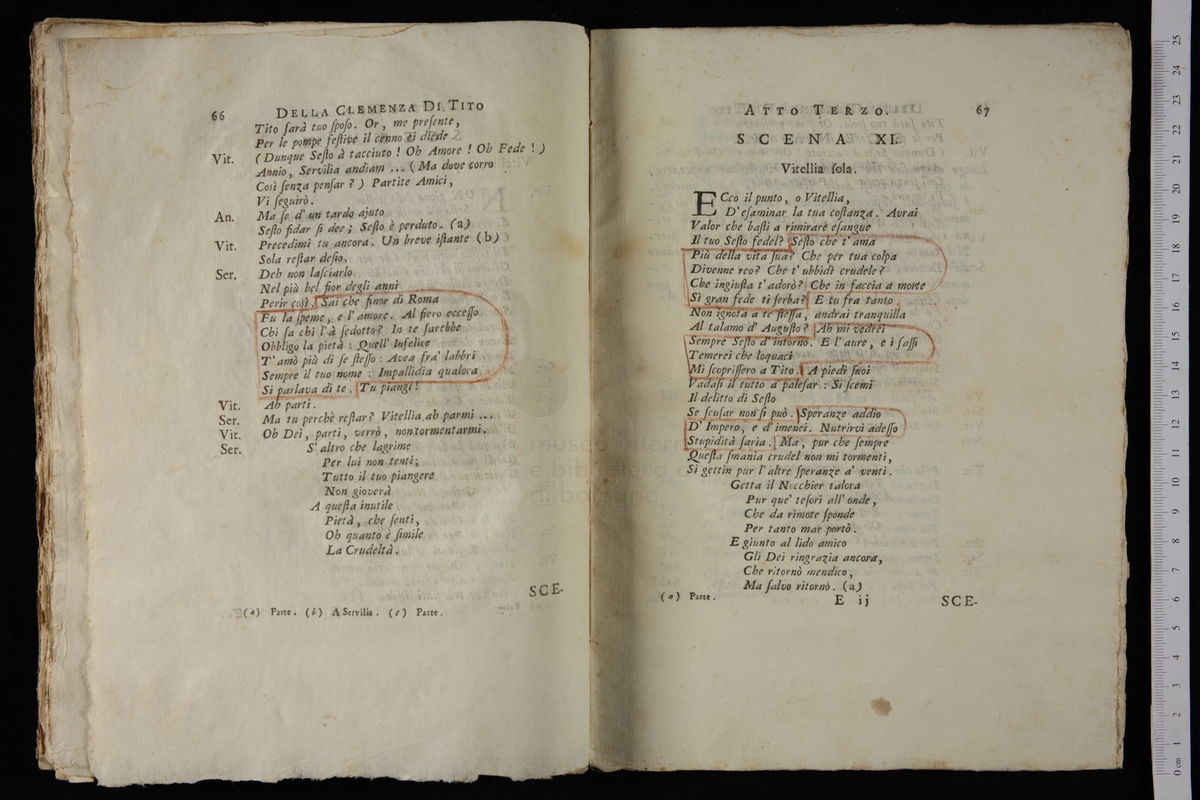 66 DELLA CLEMENZA DI TITO
Tito ſarà tuo ſpoſo. Or, me preſente,
Per le pompe feſtive il cenno ei diede.
Vit. (Dunque Seſto à tacciuto! Oh Amore! Oh Fede!)
Annio, Servilia andiam ... (Ma dove corro
Così ſenza penſar?) Partite Amici,
Vi ſeguirò.
An. Ma ſe d' un tardo ajuto
Seſto fidar ſi dee; Seſto è perduto. (a)
Vit. Precedimi tu ancora. Un breve iſtante (b)
Sola reſtar deſio.
Ser. Deh non laſciarlo
Nel più bel fior degli anni
Perir così. Sai che finor di Roma
Fu la ſpeme, e l' amore. Al fiero ecceſſo
Chi ſa chi l' à ſedotto? In te ſarebbe
Obbligo la pietà: Quell' Infelice
T' amò più di ſe ſteſſo: Avea fra' labbri
Sempre il tuo nome: Impallidia qualora
Si parlava di te. Tu piangi!
Vit. Ah parti.
Ser. Ma tu perchè reſtar? Vitellia ah parmi ...
Vit. Oh Dei, parti, verrò, non tormentarmi.
Ser. S' altro che lagrime
Per lui non tenti;
Tutto il tuo piangere
Non gioverà
A queſta inutile
Pietà, che ſenti,
Oh quanto è ſimile
La Crudeltà.
SCE-
(a) Parte. (b) A Servilia. (c) Parte.
ATTO TERZO. 67
SCENA XI.
Vitellia ſola.
ECco il punto, o Vitellia,
D' eſaminar la tua coſtanza. Avrai
Valor che baſti a rimirarè eſangue
Il tuo Seſto fedel? Seſto che t' ama
Più della vita ſua? Che per tua colpa
Divenne reo? Che t' ubbidì crudele?
Che ingiuſta t' adorò? Che in faccia a morte
Sì gran fede ti ſerba? E tu fra tanto
Non ignota a te ſteſſa, andrai tranquilla
Al talamo d' Auguſto? Ah mi vedrei
Sempre Seſto d' intorno. E l' aure, e i ſaſſi
Temerei che loquaci
Mi ſcopriſſero a Tito. A piedi ſuoi
Vadaſi il tutto a paleſar: Si ſcemi
Il delitto di Seſto
Se ſcuſar non ſi può. Speranze addio
D' Impero, e d' imenei. Nutrirvi adeſſo
Stupidità ſaria. Ma, pur che ſempre
Queſta ſmania crudel non mi tormenti,
Si gettin pur l' altre ſperanze a' venti.
Getta il Nocchier talora
Pur que' teſori all' onde,
Che da rimote ſponde
Per tanto mar portò.
E giunto al lido amico
Gli Dei ringrazia ancora,
Che ritornò mendico,
Ma ſalvo ritornò. (a)
(a) Parte. E ij SCE-